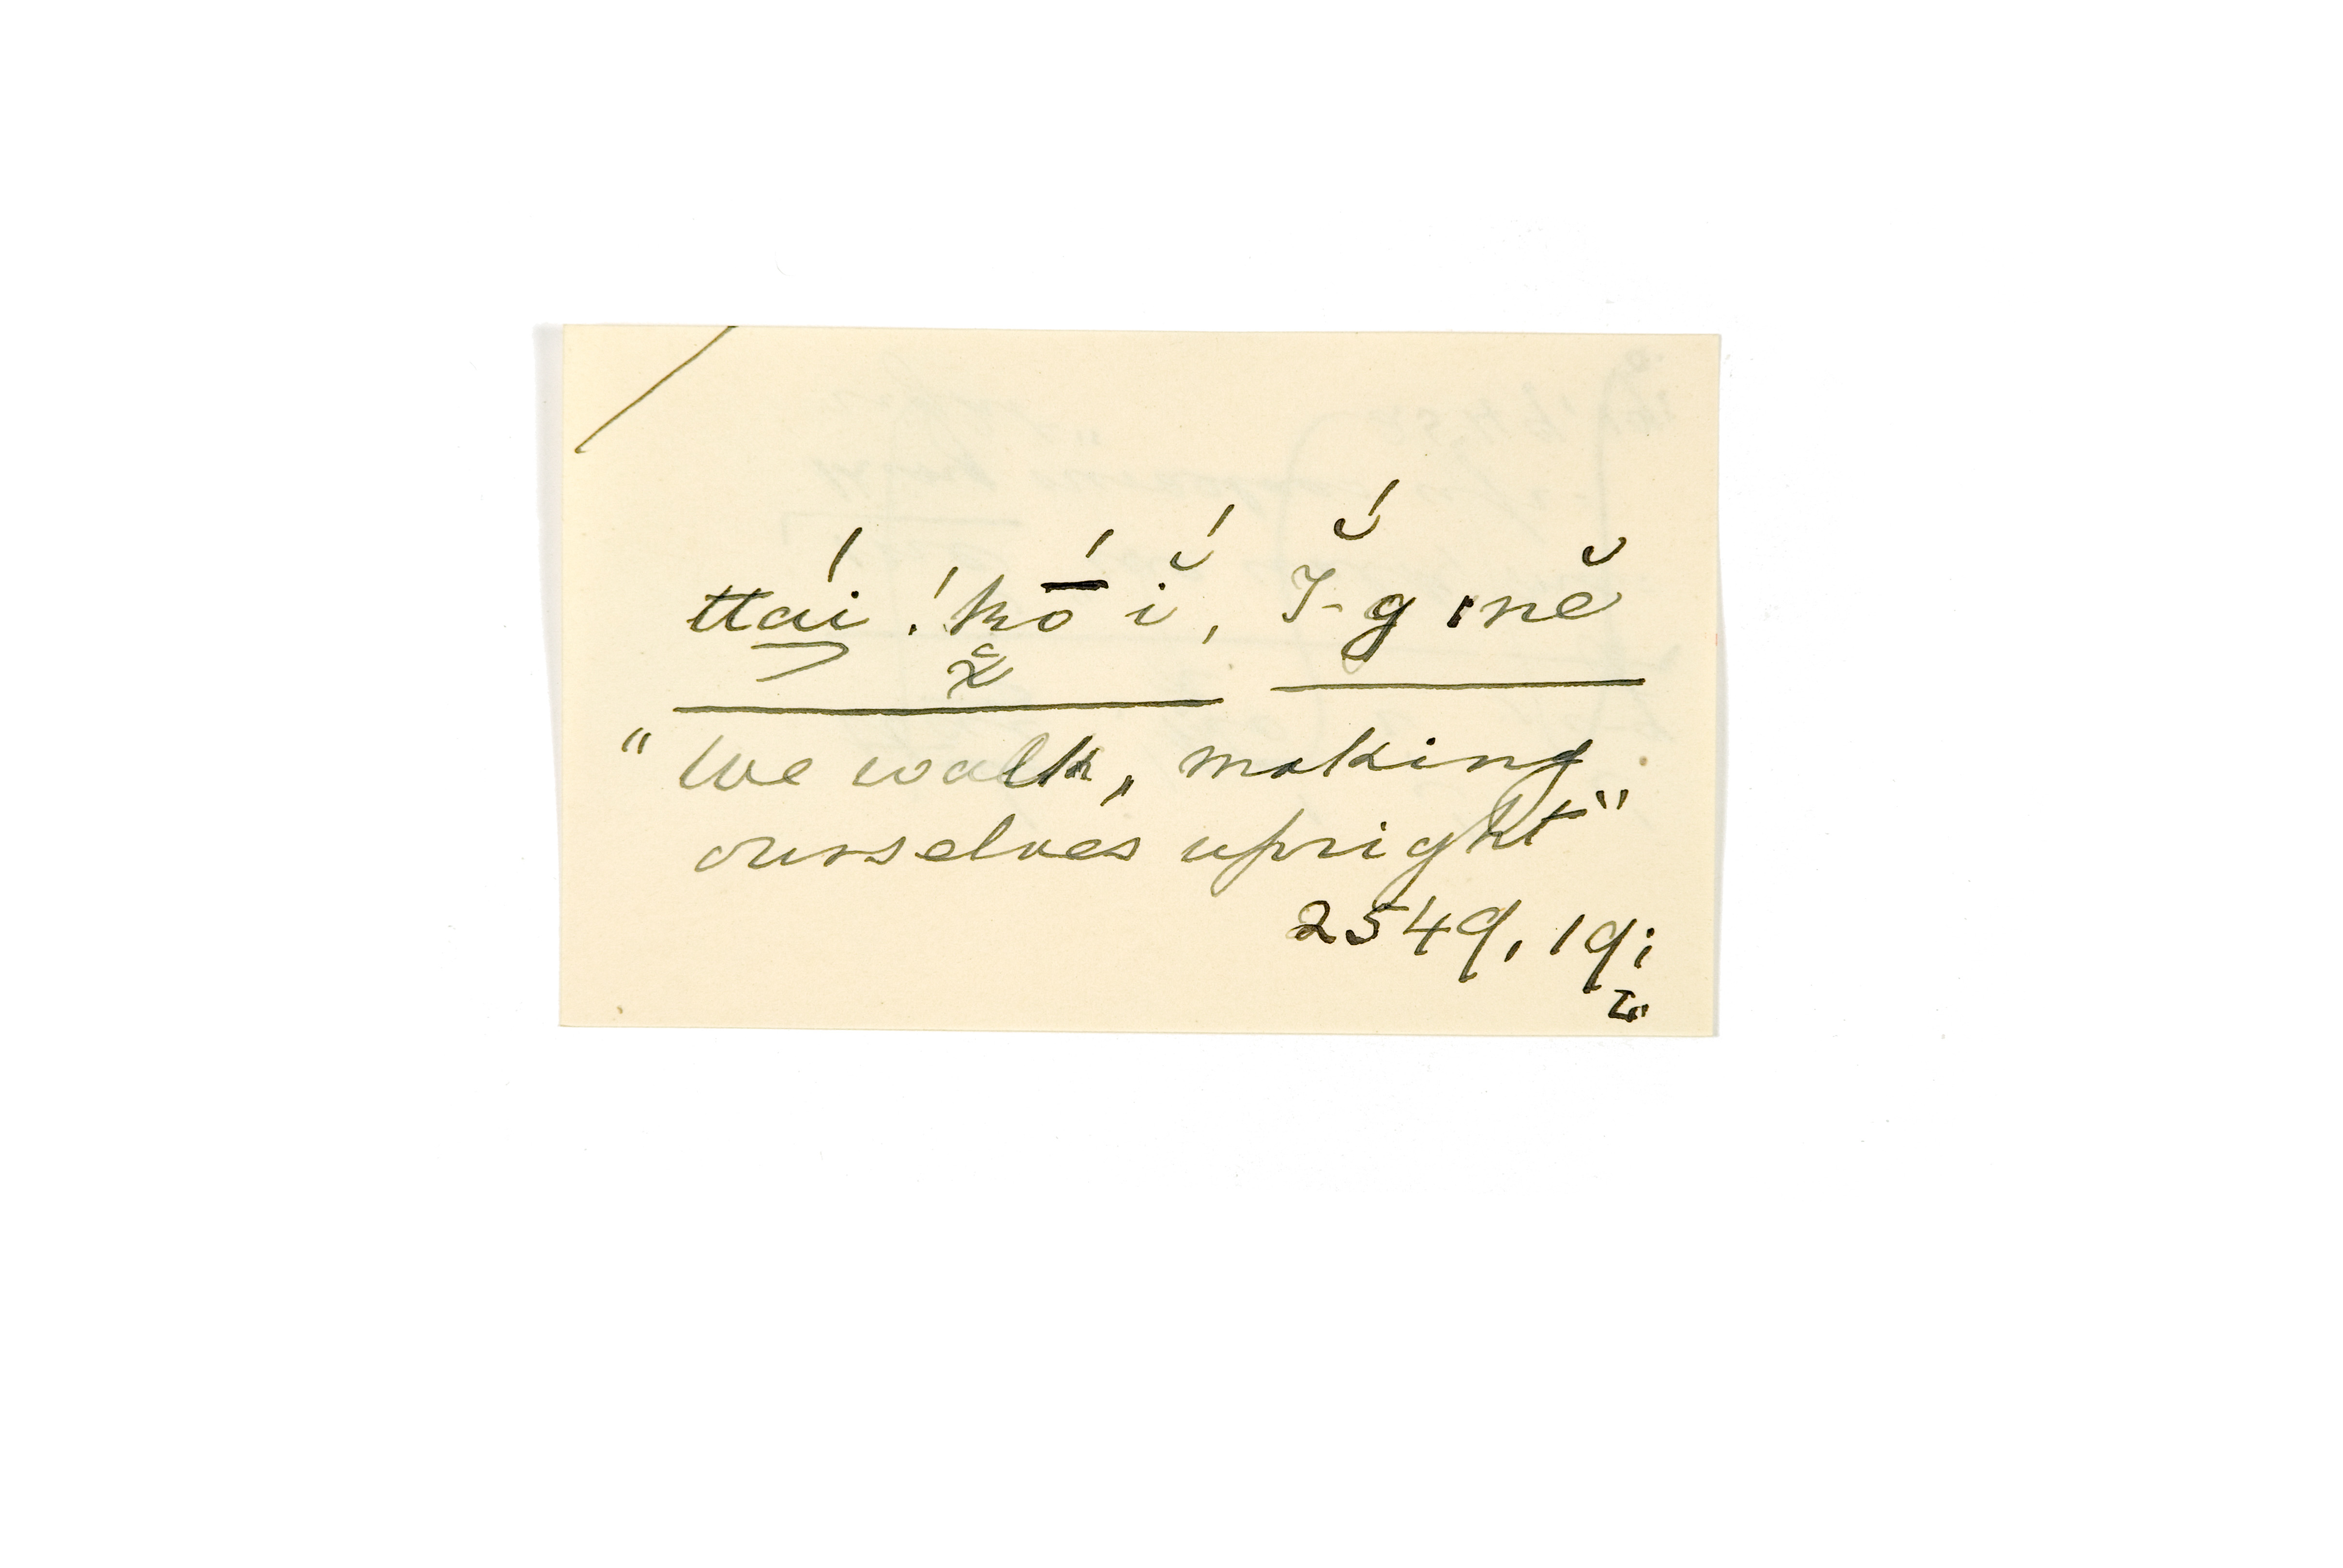 ttái !kṓ ĭ́, Ĭ́-g ıně
"We walk, making
ourselves upright"
2549, 19;